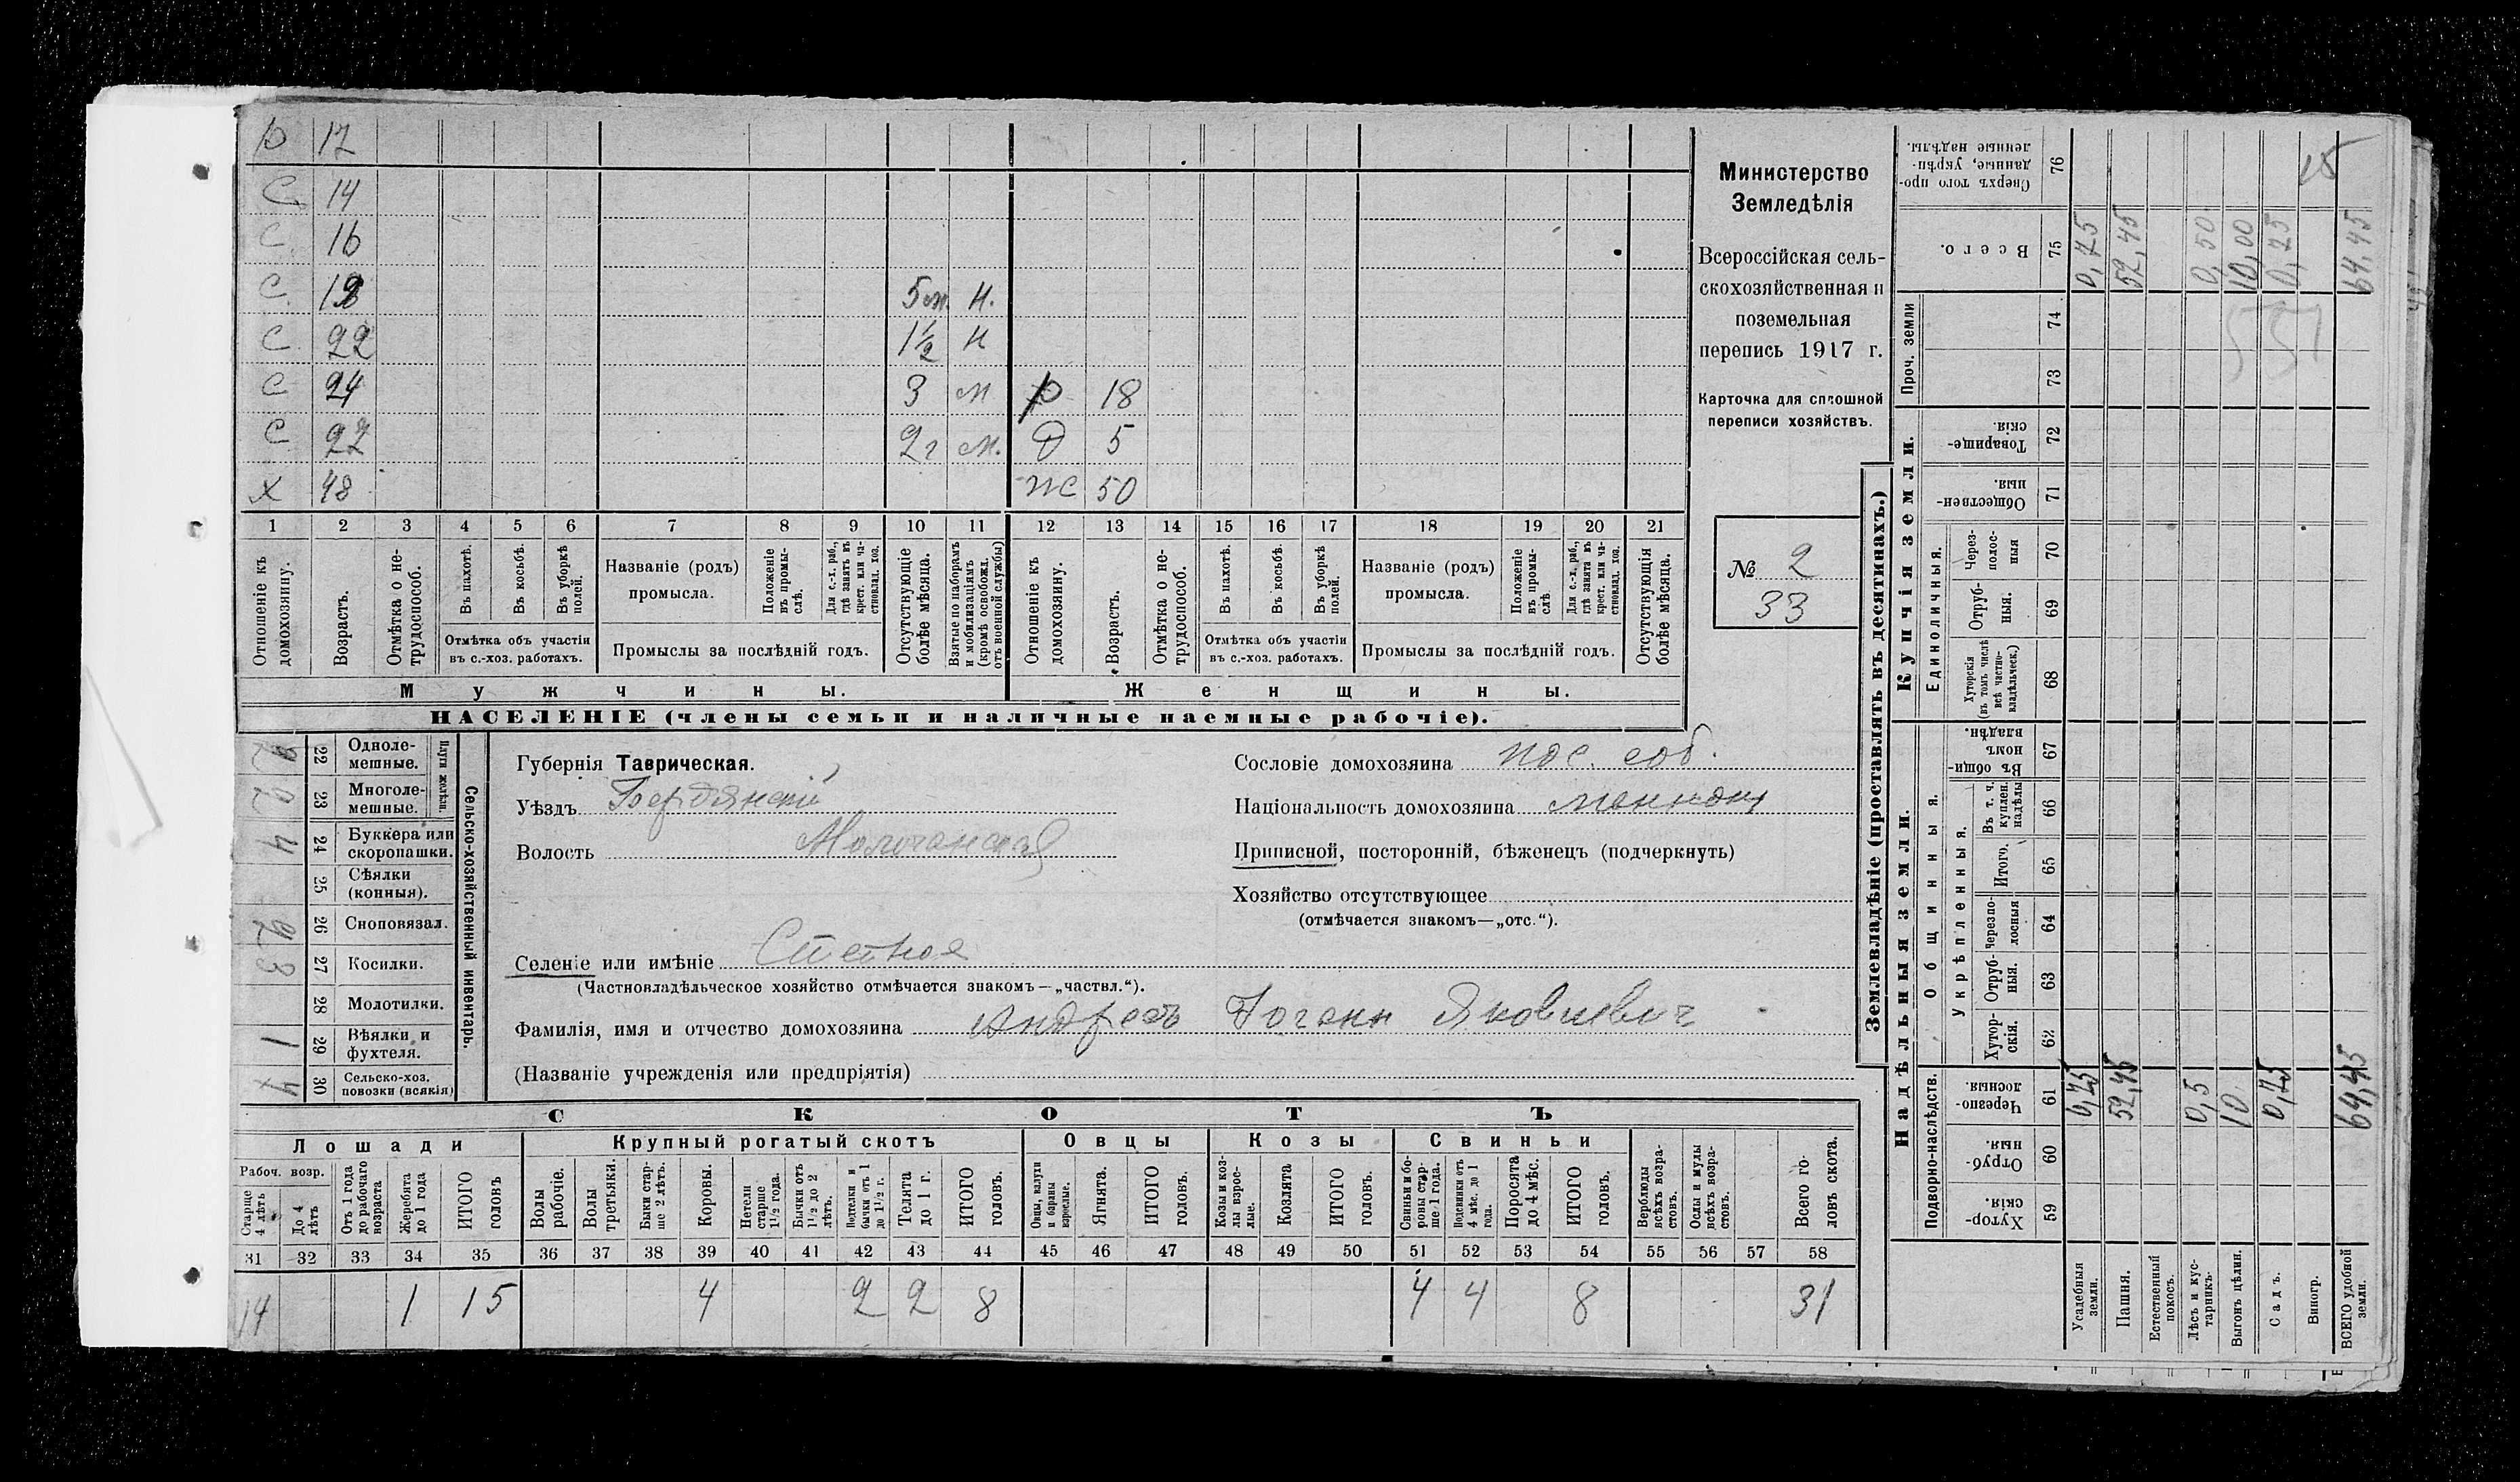 р 17
С 14
С. 16
С. 19 5м. н.
С 22 1½ н
С 24 3 м р 18
С 27 2г м. Д 5
Х 48 ж 50
1 2 3 4 5 6 7 8 9 10 11 12 13 14 15 16 17 18 19 20 21
Отношеніе къ домохозяину.
Возрастъ.
Отмѣтка о не-
трудоспособ.
Въ пахотѣ.
Въ косьбѣ.
Въ уборкѣ
полей.
Отмѣтка объ участіи
въ с.-хоз. работахъ.
Названіе (родъ)
промысла.
Положеніе
въ промы-
слѣ.
Для с.-х. раб.,
гдѣ занятъ въ
крест. или ча-
стновлад. хоз.
Промыслы за послѣдній годъ.
Отсутствующіе
болѣе мѣсяца.
Взятые по наборамъ
и мобилизаціямъ
(кромѣ освобожд.
отъ военной службы)
Отношеніе къ
домохозяину.
Возрастъ.
Отмѣтка о не-
трудоспособ.
Въ пахотѣ.
Въ косьбѣ.
Въ уборкѣ
полей.
Отмѣтка объ участіи
въ с.-хоз. работахъ.
Названіе (родъ)
промысла.
Положеніе
въ промы-
слѣ
Для с.-х. раб.,
гдѣ занята въ
крест. или ча-
стновлад. хоз.
Промыслы за послѣдній годъ.
Отсутствующія
болѣе мѣсяца.
Мужчины. Женщины.
НАСЕЛЕНІЕ (члены семьи и наличные наемные рабочіе).
Министерство
Земледѣлія
Всероссійская сель-
скохозяйственная и
поземельная
перепись 1917 г.
Карточка для сплошной
переписи хозяйствъ.
№ 2
33
Сельско-хозяйственный инвентарь.
Плуги желѣзн.
22 Одноле-
мешные.
2 23 Многоле-
мешные.
4 24 Буккера или
скоропашки.
25 Сѣялки
(конныя).
2 26 Сноповязал.
3 27 Косилки.
28 Молотилки.
1 29 Вѣялки и
фухтеля.
4 30 Сельско-хоз.
повозки (всякія)
Губернія Таврическая.
Уѣздъ Бердянскій
Волость Молочанская
Селеніе или имѣніе
(Частновладѣльческое хозяйство отмѣчается знакомъ—„частвл.“).
Фамилія, имя и отчество домохозяина Андресъ Іоганн Яковлевич
(Названіе учрежденія или предпріятія)
Сословіе домохозяина пос. соб.
Національность домохозяина меннон
Приписной, посторонній, бѣженецъ (подчеркнуть)
Хозяйство отсутствующее
(отмѣчается знакомъ—„отс.“).
СКОТЪ
Лошади Крупный рогатый скотъ Овцы Козы Свиньи
Рабоч. возр.
Старше
4 лѣтъ
До 4
лѣтъ
Отъ 1 года
до рабочаго
возраста
Жеребята
до 1 года
ИТОГО
головъ
Волы
рабочіе.
Волы
третьяки.
Быки стар-
ше 2 лѣтъ.
Коровы.
Нетели
старше
1½ года.
Бычки отъ
1½ до 2
лѣтъ.
Подтелки и
бычки отъ 1
до 1½ г.
Телята
до 1 г.
ИТОГО
головъ.
Овцы, валухи
и бараны
взрослые.
Ягнята.
ИТОГО
головъ.
Козы и коз-
лы взрос-
лые.
Козлята
ИТОГО
головъ.
Свиньи и бо-
ровы стар-
ше 1 года.
Подсвинки отъ
4 мѣс. до 1
года.
Поросята
до 4 мѣс.
ИТОГО
головъ.
Верблюды
всѣхъ возра-
стовъ.
Ослы и мулы
всѣхъ возра-
стовъ.
Всего го-
ловъ скота.
31 32 33 34 35 36 37 38 39 40 41 42 43 44 45 46 47 48 49 50 51 52 53 54 55 56 57 58
14 1 15 4 2 2 8 4 4 8 31
Землевладѣніе (проставлять въ десятинахъ.)
Сверхъ того про-
данные, укрѣп-
ленные надѣлы. 76
15
Всего. 75 0,75 52,45 0,50 10,00 0,25 64,45
Проч. земли 74 73
551
Купчія земли.
Товарище-
скія. 72
Обществен-
ныя. 71
Единоличныя.
Через-
полос-
ныя 70
Отруб-
ныя. 69
Хуторскія
(въ томъ числѣ
всѣ частно-
владѣльческ.) 68
Надѣльныя земли.
Общинныя.
Въ общин-
номъ
владѣн. 67
Укрѣпленныя.
Въ т. ч.
куплен.
надѣлы 66
Итого. 65
Черезпо-
лосныя 64
Отруб-
ныя. 63
Хутор-
скія. 62
Подворно-наслѣдств.
Черезпо-
лосныя. 61 0,75 52,45 0,5 10 0,75 64,45
Отруб-
ныя. 60
Хутор-
скія. 59
Усадебныя
земли.
Пашня.
Естественный
покосъ.
Лѣсъ и кус-
тарникъ.
Выгонъ цѣлин.
Садъ.
Виногр.
ВСЕГО удобной
земли.